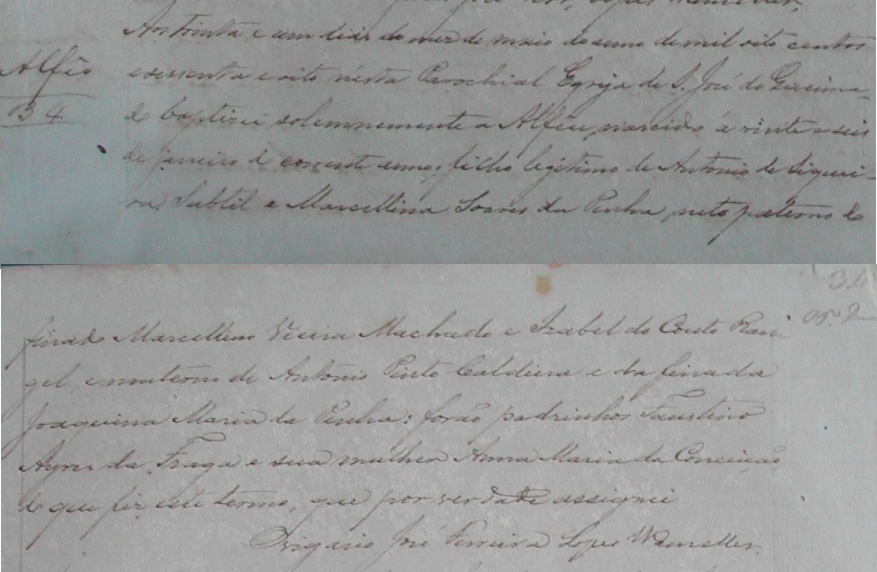 Lopes
Aos trinta e um dias do mez de maio do anno de mil oito centos
Alfêo
e sessenta e oito nésta Parochial Egreja de S. José do
34
e baptizei solemnemente a Alfêu, nascido á vinte e seis
de janeiro do corrente anno, filho legitimo de Antonio de Siquei-
ra Subtil e Marcellina Soares da Penha, neto paterno do
34
finado Marcellino Vieira Machado e Izabel do Couto Ran-
gel, e materno de Antonio Pinto Caldeira e da finada
Joaquina Maria da Penha: forão padrinhos Faustino
Ayres da Fraga e sua mulher Anna Maria da Conceição,
de que fiz este termo, que por verdade assignei
Vigario José Ferreira Lopes